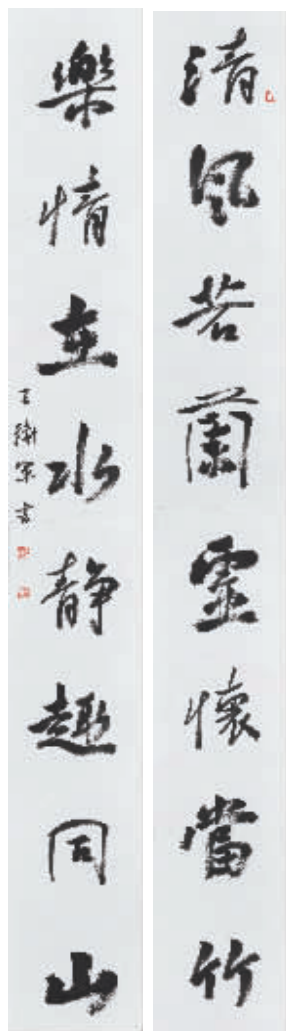 清風若蘭靈懷當竹
樂情在水靜趣同山
王衛軍書